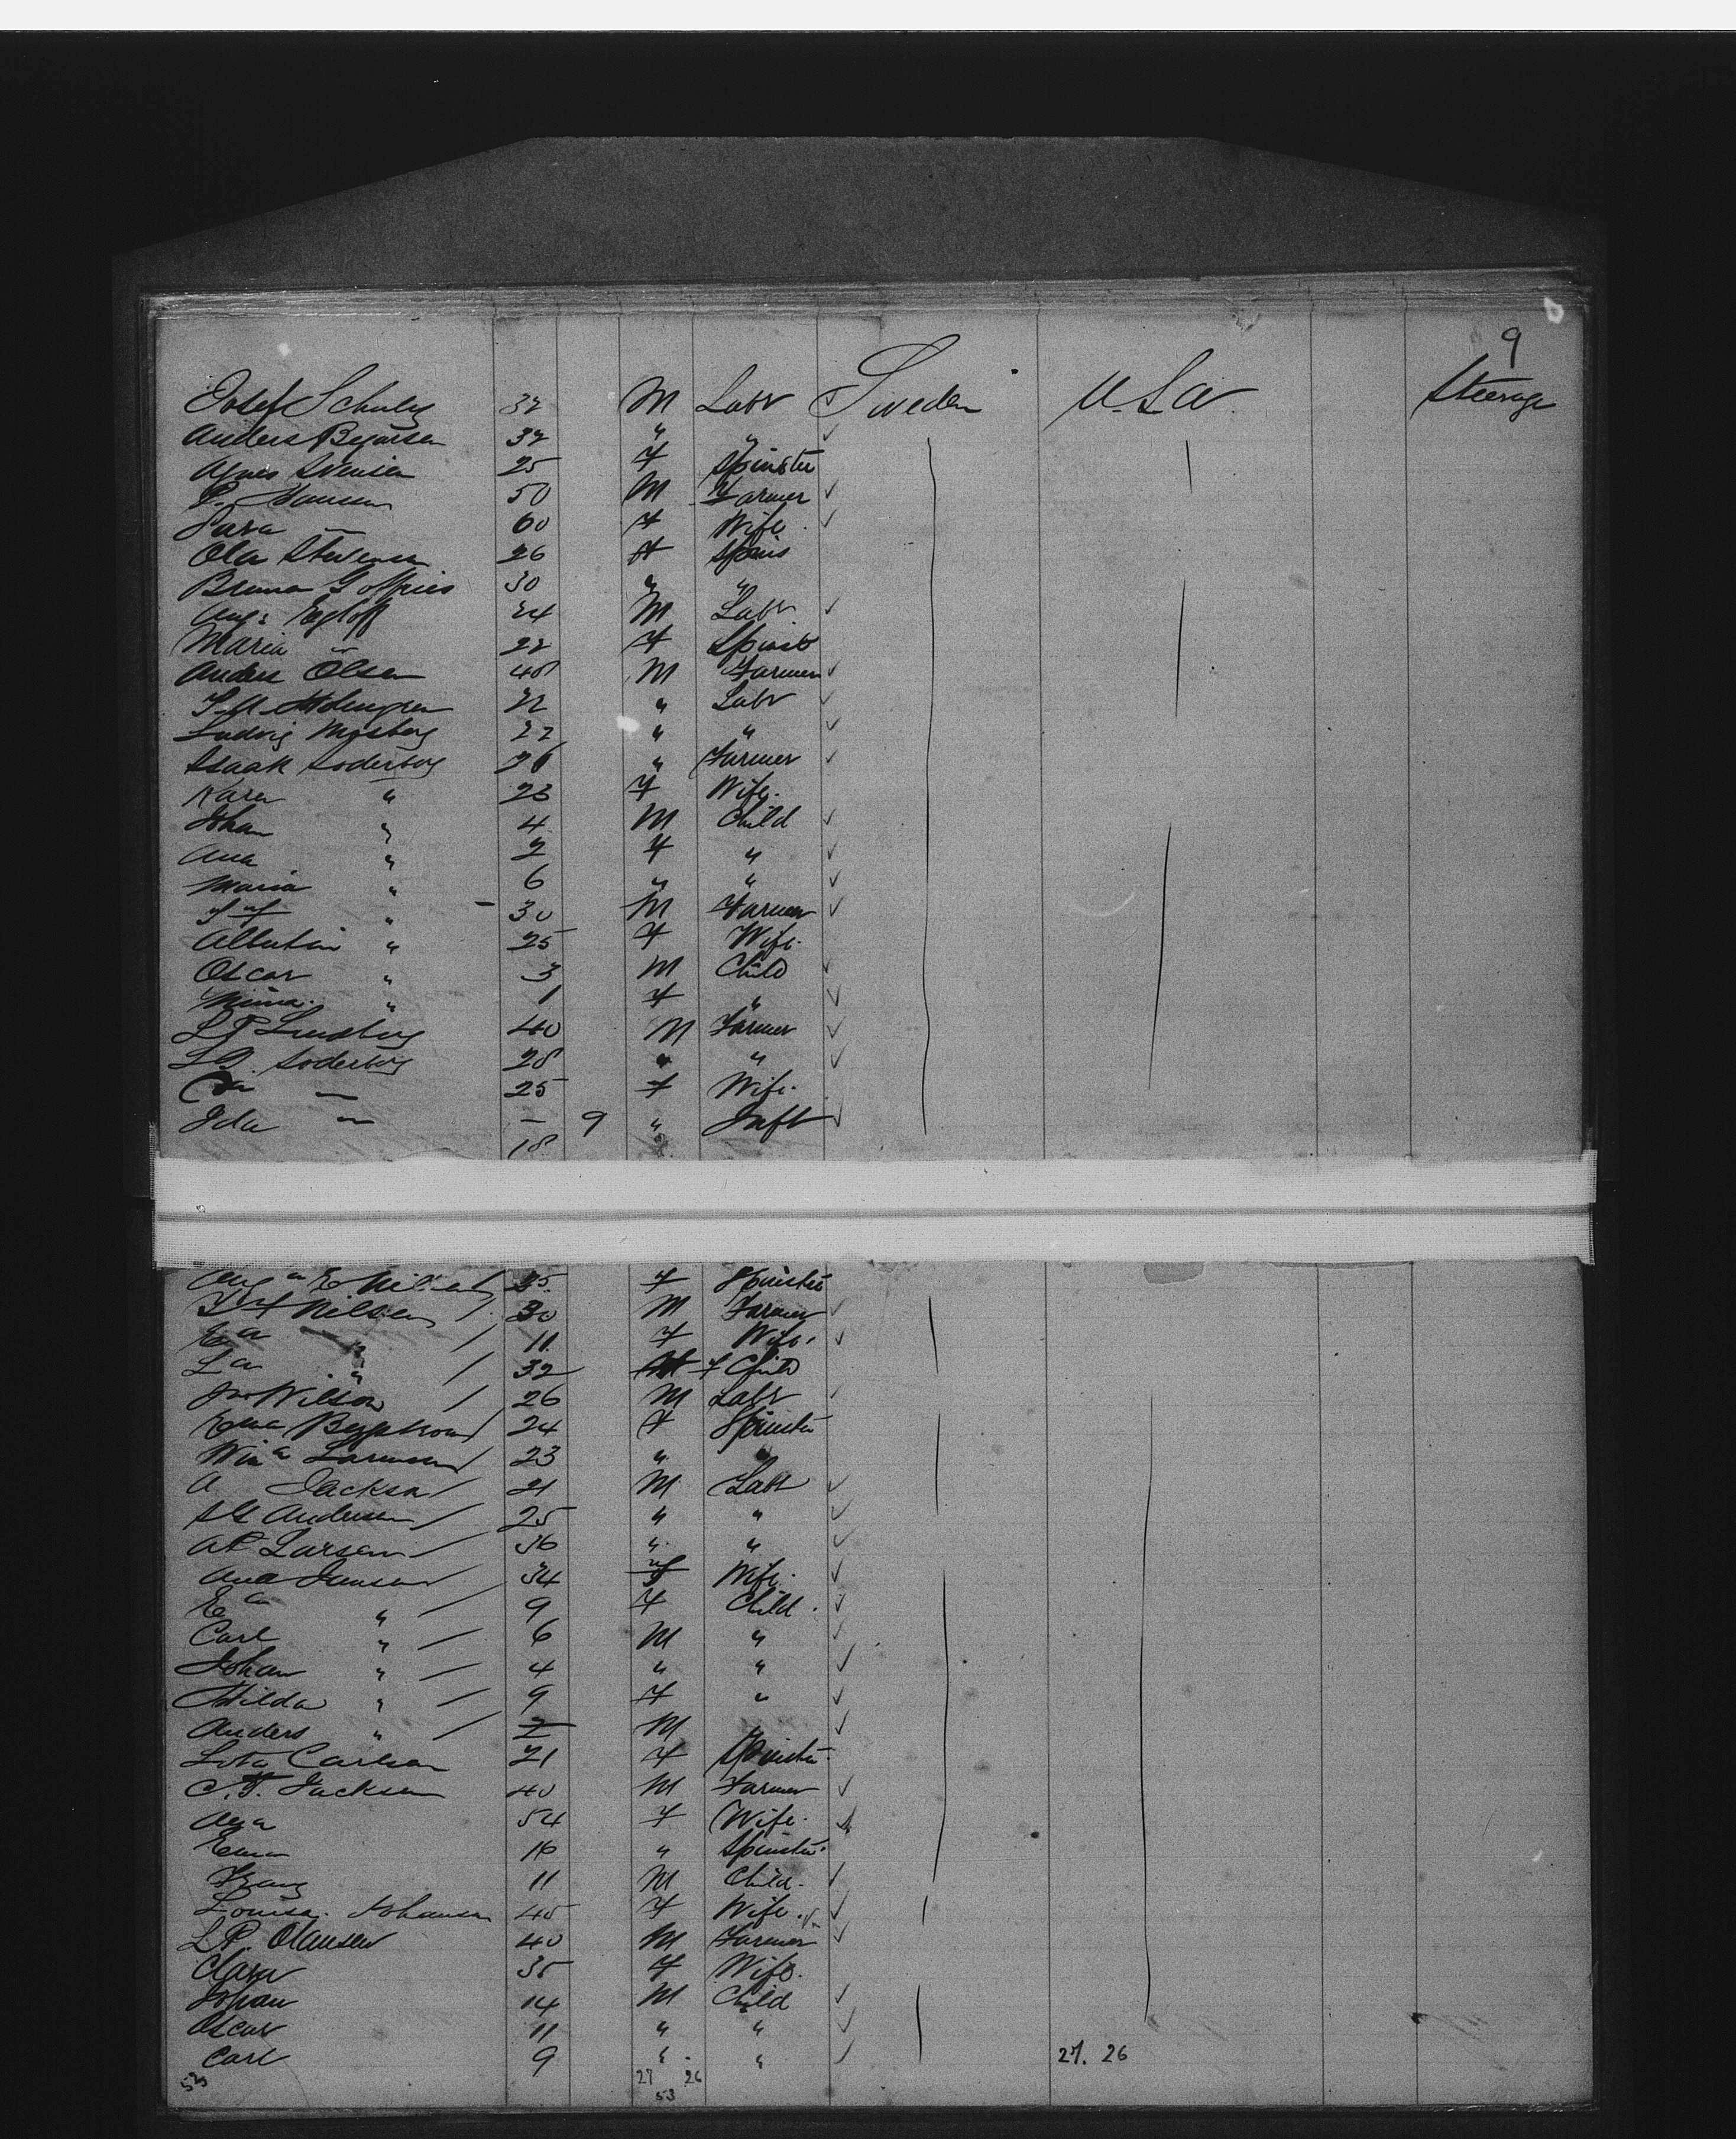 9
Josef Schulz 32 M Labr Sweden U.S.A Steerage
Anders 32 " "
Agnes Svensen 25 F Spinster
P. Hansen 50 M Farmer
Sara — 60 F Wife
Ola 26 F Spins
30 " "
Aug: Egloff 24 M Labr
Maria " 22 F Spinst
Anders Olsen 48 M Farmer
" Labr
Ludvig 22 " "
Isaak Soderborg 26 " Farmer
Kara " 23 F Wife
Johan " 4 M Child
Ana " 2 F "
Maria " 6 " "
" 30 M Farmer
Albertin " 25 F Wife
Oscar " 3 M Child
Minna " 1 F "
L P Lundberg 40 M Farmer
Soderborg 28 " "
— 25 F Wife
Ida — – 9 " Inft
18
25 F Spinster
Nilsen / 30 M Farmer
E a " / 11 F Wife
L a " / 32 F Child
Jno Wilson / 26 M Labr
24 F Spinster
23 " "
A Jackson / 21 M Labr
Andersen / 25 " "
A P Larsen / 36 " "
Ana Jansen / 34 F Wife
E a " / 9 F Child
Carl " / 6 M "
Johan " / 4 " "
Hilda " / 9 F "
Anders " / 2 M "
Lota Carlson 21 F Spinster
C. F. Jackson 40 M Farmer
54 F Wife
Emma 16 " Spinster
Franz 11 M Child
Louisa Johansen 45 F Wife
L P. Olausen 40 M Farmer
Clara 35 F Wife
Johan 14 M Child
Oscar 11 " "
Carl 9 " " 27. 26
53 27 26
53